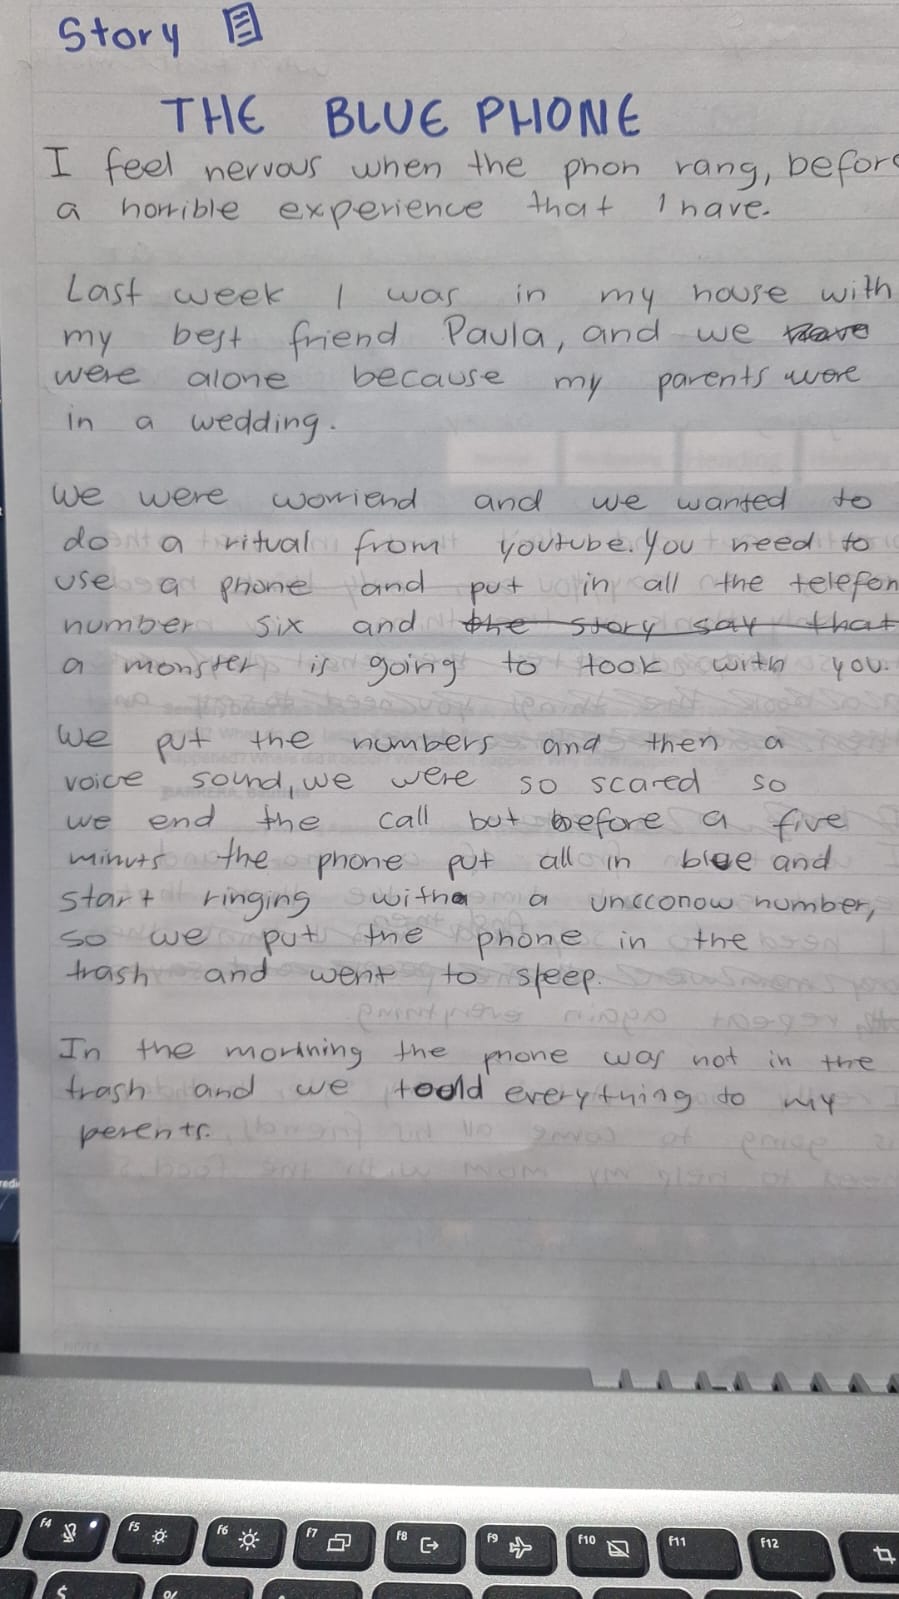 Story
THE BLUE PHONE
I feel nervous when the phon rang, before
a horrible experience that I have.
Last week I was in my house with
my best friend Paula, and we have
were alone because my parents were
in a wedding.
We were worriend and we wanted to
do a ritual from youtube. You need to
use a phone and put in all the telefon
number six and the story say that
a monster is going to took with you.
We put the numbers and then a
voice sound, we were so scared so
we end the call but before a five
minuts the phone put all in blue and
start ringing with a uncconow number,
so we put the phone in the
trash and went to sleep.
In the morning the phone was not in the
trash and we toold everything to my
perents.
f4
f5
f6
f7
f8
f9
f10
f11
f12
$
%